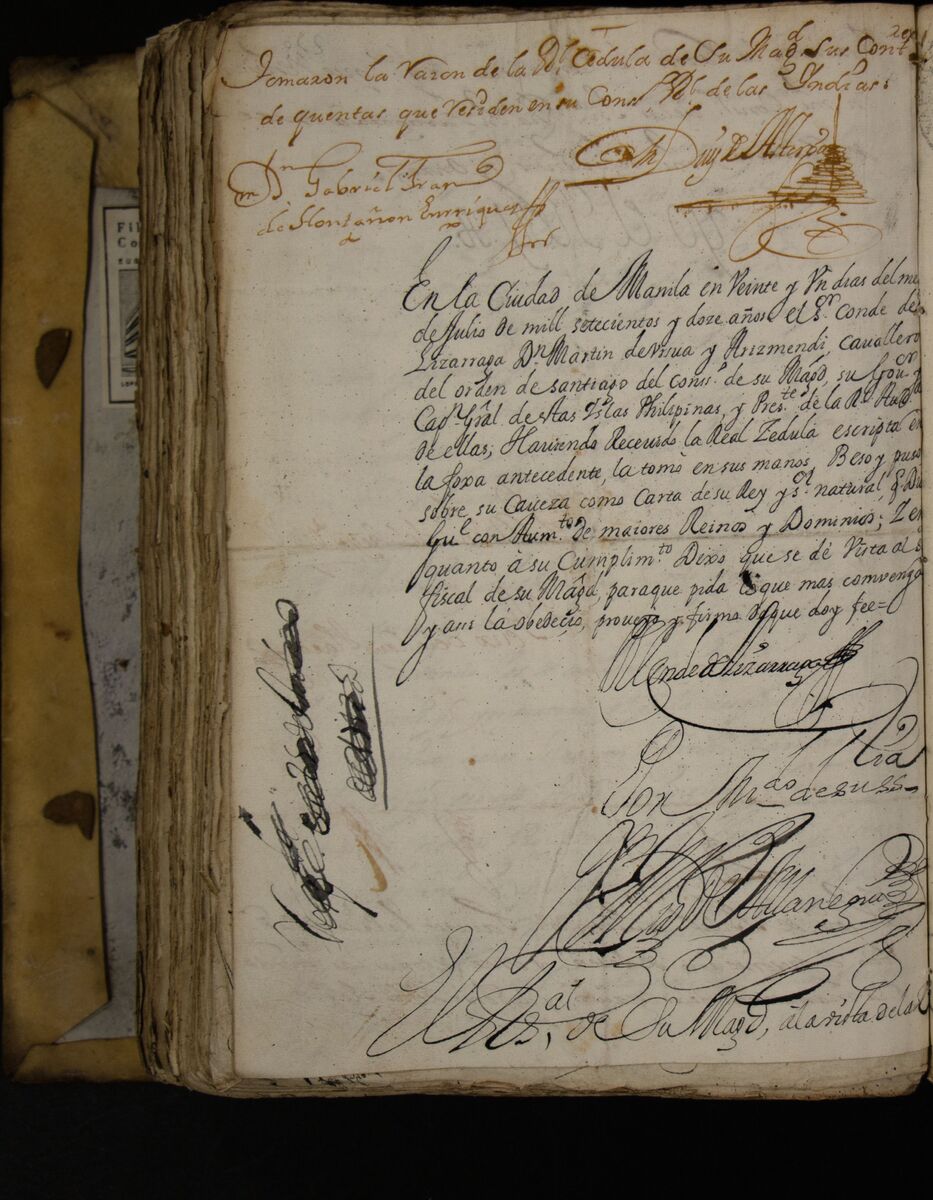 Tomaron la Razon de la Rl Cedula de Su Magd sus Contres
de quentas que Residen en su Consº Rl de las Indias
Dn Gabriel Fran
de Montañon Enrriquez
En la Ciudad de Manila en Veinte y Vn dias del me
de Julio de mill setecientos y doze años el sor conde de
Lizarraga Dn Martin de Vrsua y Arizmendi, cavallero
del orden de santiago del conssº de su Magd, su Govor
Capn Gräl de estas Yslas Philipinas, y Preste de la Rl Audª
de ellas; Haviendo Receuido la Real Zedula escripta en
la foxa antecedente, la tomò en sus manos, Beso y puso
sobre su Caueza como Carta de su Rey y sor natural q Dis
Gue con Aumto de maiores Reinos y Dominios; Y en
quanto à su Cumplimto Dixo que se dè Vista al s
fiscal de su Magd, paraque pida lo que mas comvenga
y assi la obedeciò, proveyo y firmo de que doy fee=
Conde de Lizarraga
Por Mdo de su ssria
de Su Magd, à la vista de la